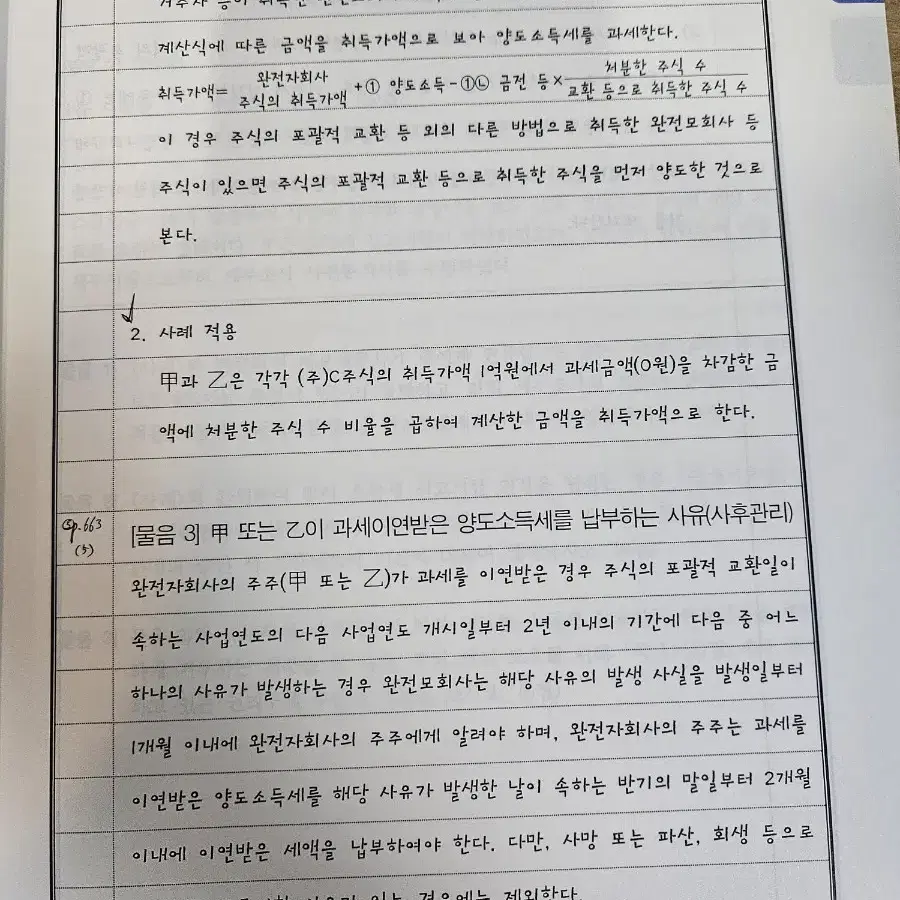 거주자 등이 취득한
계산식에 따른 금액을 취득가액으로 보아 양도소득세를 과세한다.
취득가액= 완전자회사 주식의 취득가액 +① 양도소득-①㉡ 금전 등× 처분한 주식 수 / 교환 등으로 취득한 주식 수
이 경우 주식의 포괄적 교환 등 외의 다른 방법으로 취득한 완전모회사 등
주식이 있으면 주식의 포괄적 교환 등으로 취득한 주식을 먼저 양도한 것으로
본다.
2. 사례 적용
甲과 乙은 각각 (주)C주식의 취득가액 1억원에서 과세금액(0원)을 차감한 금
액에 처분한 주식 수 비율을 곱하여 계산한 금액을 취득가액으로 한다.
p.663
[물음 3] 甲 또는 乙이 과세이연받은 양도소득세를 납부하는 사유(사후관리)
완전자회사의 주주(甲 또는 乙)가 과세를 이연받은 경우 주식의 포괄적 교환일이
속하는 사업연도의 다음 사업연도 개시일부터 2년 이내의 기간에 다음 중 어느
하나의 사유가 발생하는 경우 완전모회사는 해당 사유의 발생 사실을 발생일부터
1개월 이내에 완전자회사의 주주에게 알려야 하며, 완전자회사의 주주는 과세를
이연받은 양도소득세를 해당 사유가 발생한 날이 속하는 반기의 말일부터 2개월
이내에 이연받은 세액을 납부하여야 한다. 다만, 사망 또는 파산, 회생 등으로
있는 경우에는 제외한다.